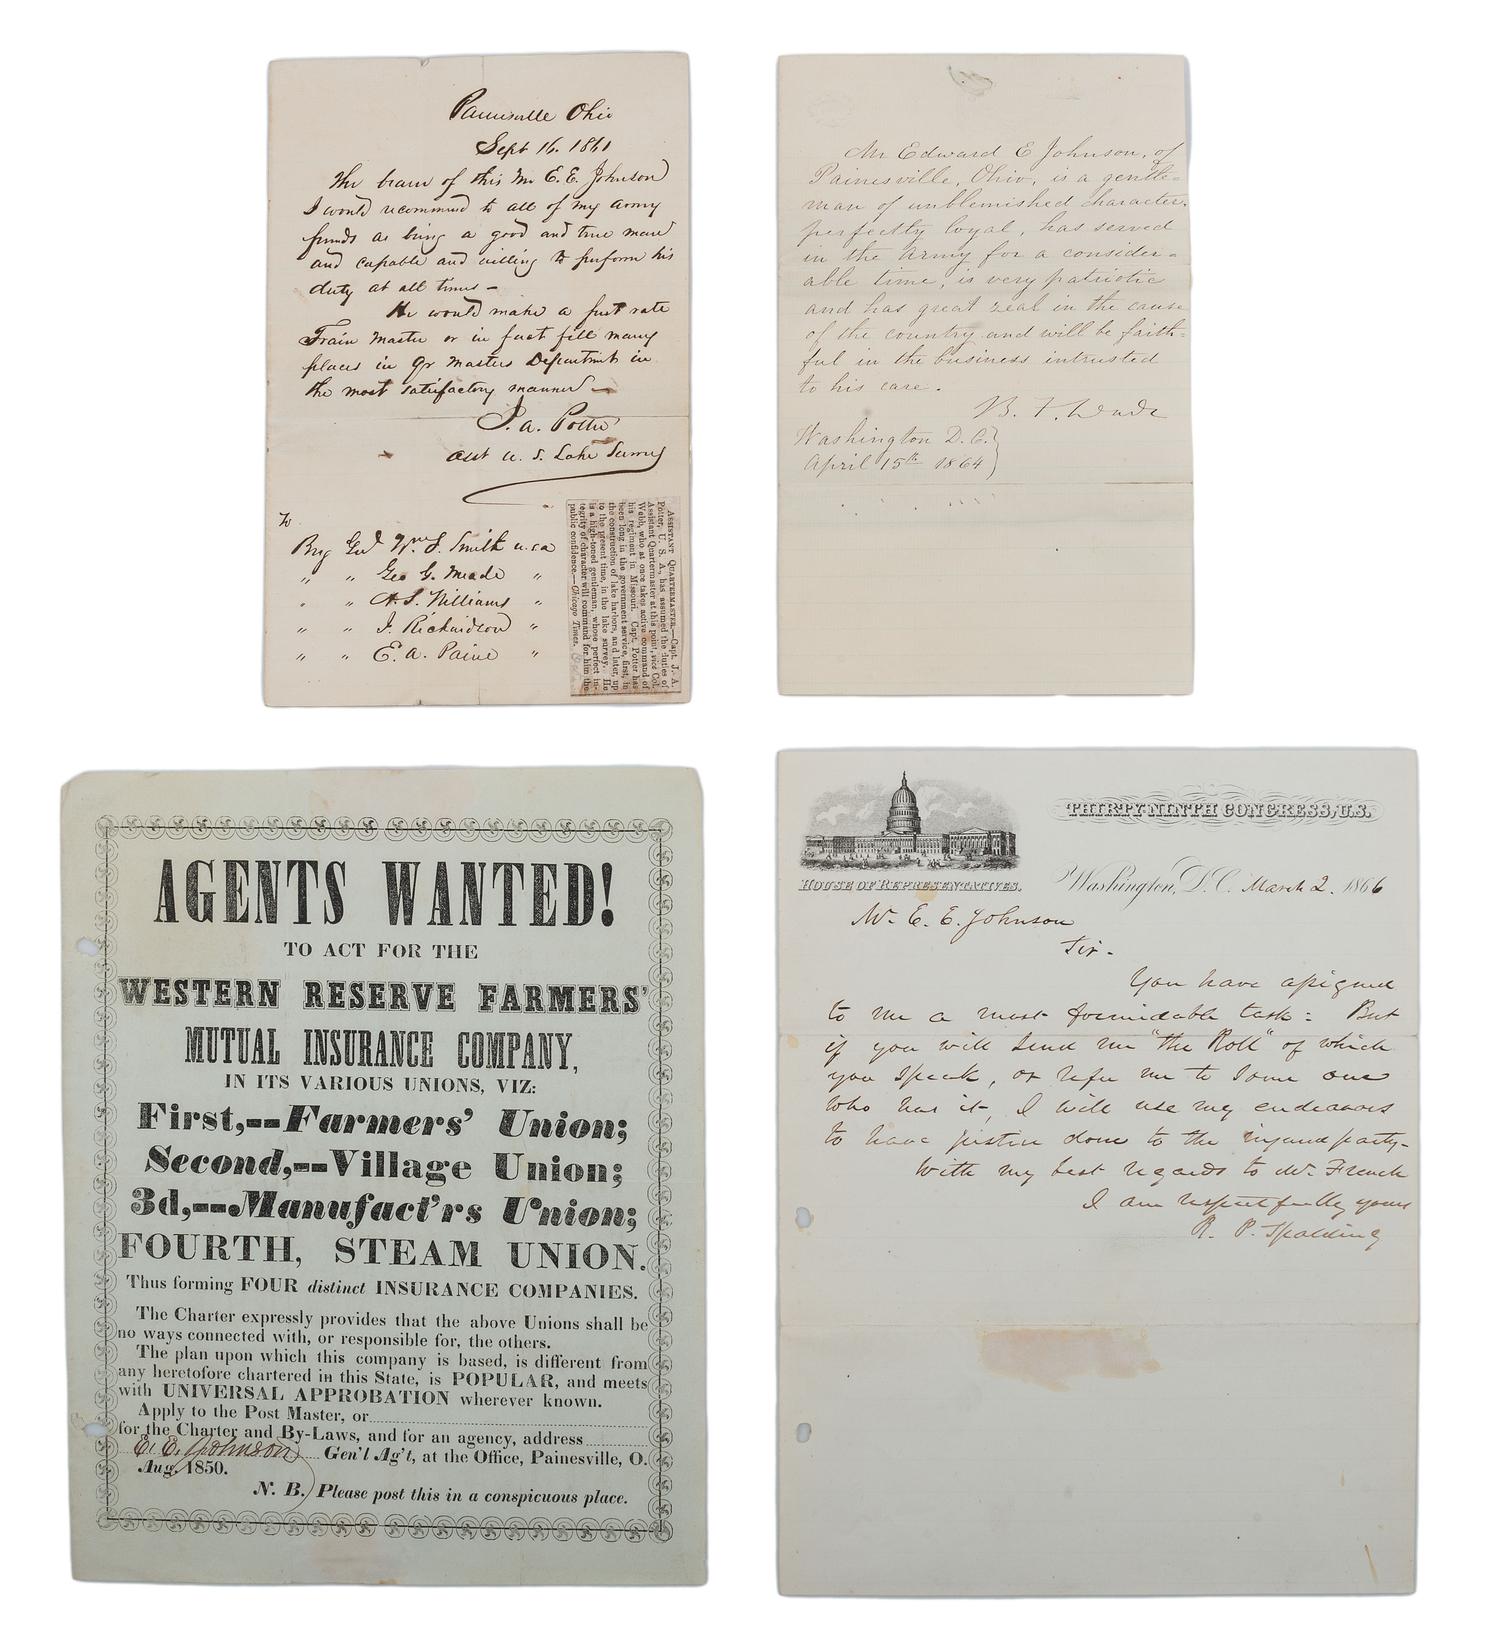 Painesville Ohio
Sept 16. 1861
The bearer of this Mr E. E. Johnson
I would recommend to all of my Army
friends as being a good and true man
and capable and willing to perform his
duty at all times –
He would make a first rate
Train Master or in fact fill many
places in Qr Masters Department in
the most satisfactory manner —
J. A. Potter
Asst U. S. Lake Survey
To
Brig Genl Wm. F. Smith U.S.A
" " Geo G. Meade "
" " A. S. Williams "
" " I. Richardson "
" " E. A. Paine "
ASSISTANT QUARTERMASTER.—Capt. J. A.
Potter, U. S. A., has assumed the duties of
Assistant Quartermaster at this point, vice Col.
Webb, who at once takes active command of
his regiment in Missouri. Capt. Potter has
been long in the government service, first, in
the construction of lake harbors, and later, up
to the present time, in the lake survey. He
is a high-toned gentleman, whose perfect in-
tegrity of character will command for him the
public confidence.—Chicago Times.
Mr Edward E Johnson, of
Painesville, Ohio, is a gentle=
man of unblemished character,
perfectly loyal, has served
in the army for a consider=
able time, is very patriotic
and has great zeal in the cause
of the country and will be faith=
ful in the business intrusted
to his care.
B. F. Wade
Washington D.C.
April 15th 1864
AGENTS WANTED!
TO ACT FOR THE
WESTERN RESERVE FARMERS'
MUTUAL INSURANCE COMPANY,
IN ITS VARIOUS UNIONS, VIZ:
First,--Farmers' Union;
Second,--Village Union;
3d,--Manufact'rs Union;
FOURTH, STEAM UNION.
Thus forming FOUR distinct INSURANCE COMPANIES.
The Charter expressly provides that the above Unions shall be
no ways connected with, or responsible for, the others.
The plan upon which this company is based, is different from
any heretofore chartered in this State, is POPULAR, and meets
with UNIVERSAL APPROBATION wherever known.
Apply to the Post Master, or
for the Charter and By-Laws, and for an agency, address
E. E. Johnson Gen'l Ag't, at the Office, Painesville, O.
Aug. 1850.
N. B. Please post this in a conspicuous place.
THIRTY-NINTH CONGRESS, U.S.
HOUSE OF REPRESENTATIVES.
Washington, D.C. March 2. 1866
Mr. E. E. Johnson
Sir.
You have assigned
to me a most formidable task: But
if you will send me "the Roll" of which
you speak, or refer me to some one
who has it, I will use my endeavors
to have justice done to the injured party–
With my best regards to Mr. French
I am respectfully yours
R. P. Spalding